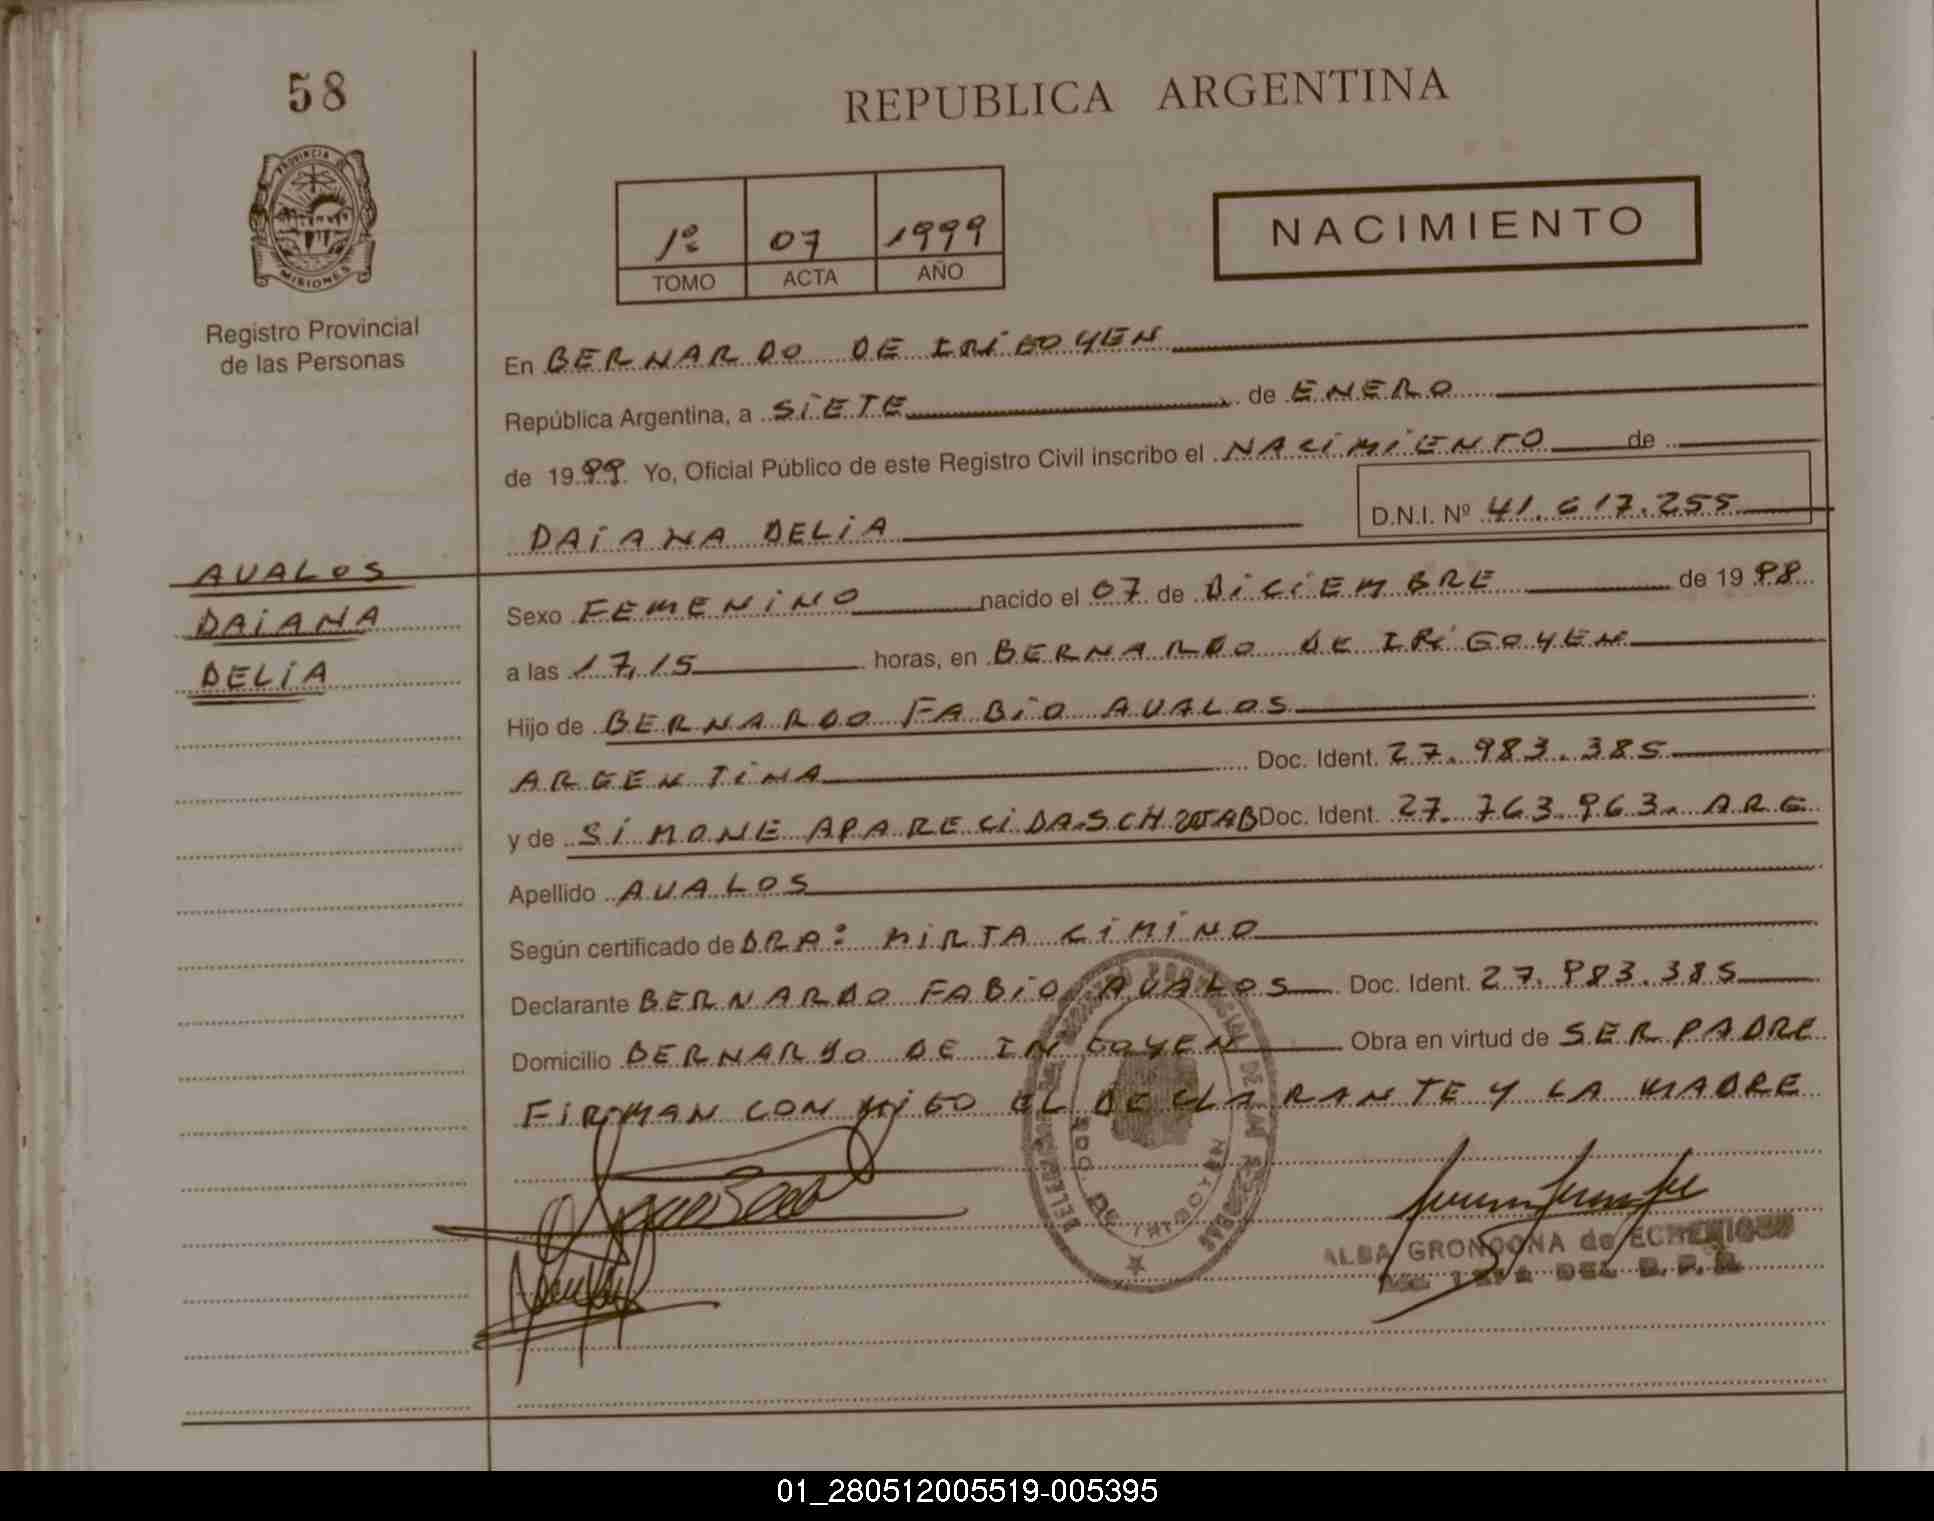 58
REPUBLICA ARGENTINA
PROVINCIA
MISIONES
Registro Provincial
de las Personas
1º 07 1999
TOMO ACTA AÑO
NACIMIENTO
En BERNARDO DE IRIGOYEN
República Argentina, a SIETE de ENERO
de 1999 Yo, Oficial Público de este Registro Civil inscribo el NACIMIENTO de
DAIANA DELIA D.N.I. Nº 41.617.255
AVALOS
DAIANA
DELIA
Sexo FEMENINO nacido el 07 de DICIEMBRE de 1998
a las 17,15 horas, en BERNARDO DE IRIGOYEN
Hijo de BERNARDO FABIO AVALOS
ARGENTINA Doc. Ident. 27.983.385
y de SIMONE APARECIDA Doc. Ident. 27.763.963. ARG
Apellido AVALOS
Según certificado de DRA: MIRTA CIMINO
Declarante BERNARDO FABIO AVALOS Doc. Ident. 27.983.385
Domicilio BERNARDO DE IRIGOYEN Obra en virtud de SER PADRE
FIRMAN CONMIGO EL DECLARANTE Y LA MADRE
ALBA GRONDONA de ECHENIQUE
DEL R.P.P.
01_280512005519-005395